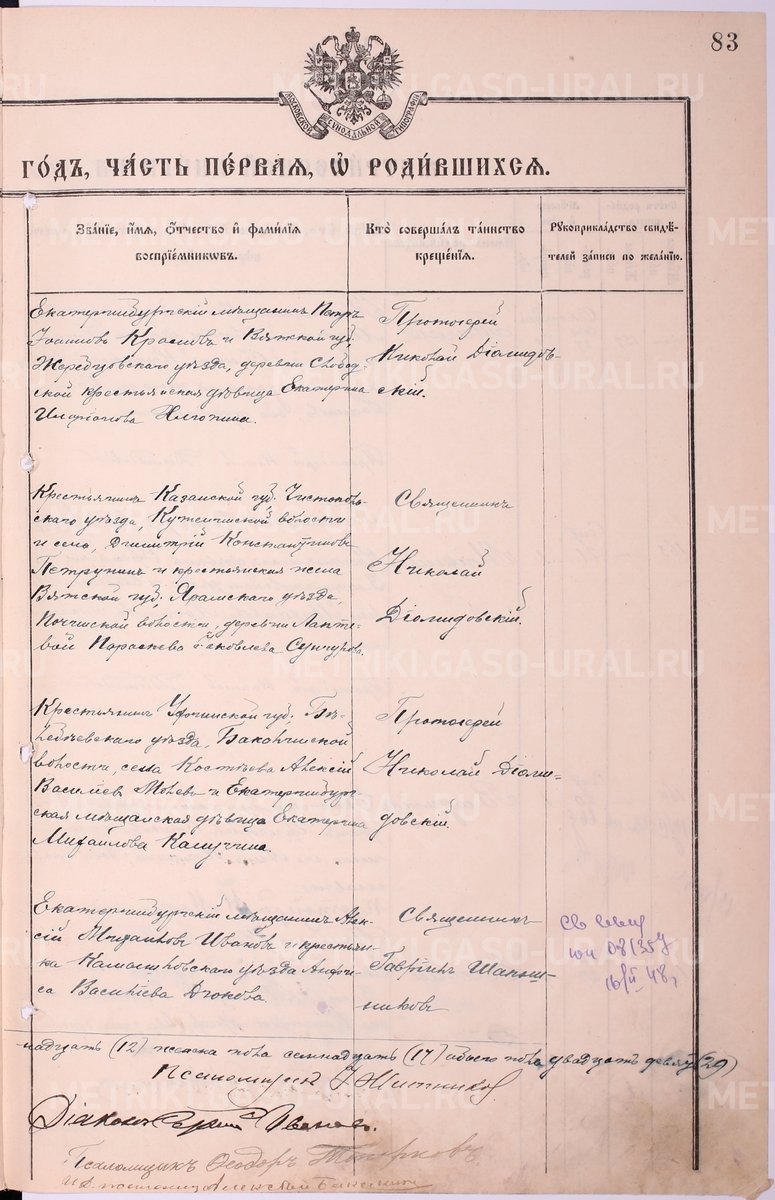 83
МОСКОВСКОЙ СѴНОДАЛЬНОЙ ТИПОГРАФІИ
ГО́ДЪ, ЧА́СТЬ ПЕ́РВАѦ, Ѽ РОДИ́ВШИХСѦ.
Зва́нїе, и҆́мѧ, ѻ҆́тчество и҆ фамилїѧ
воспрїе́мникѡвъ.
Кто̀ соверша́лъ та́инство
креще́нїѧ.
Рꙋкоприкла́дство свидѣ́-
телей за́писи по жела́нїю.
Екатеринбургскій мѣщанинъ Петръ
Іоанновъ Красновъ и Вятской губ.,
уѣзда, деревни Свобод-
ской крестьянская дѣвица Екатерина
Иларіонова
Протоіерей
Николай Діомидов-
скій.
Крестьянинъ Казанской губ. Чистополь-
скаго уѣзда, волости
и села, Димитрій Константиновъ
Петрунинъ и крестьянская жена
Вятской губ., Яранскаго уѣзда,
волости, деревни Лапте-
вой Параскева Яковлева
Священникъ
Николай
Діомидовскій.
Крестьянинъ Уфимской губ., Бе-
лебеевскаго уѣзда, Бакалинской
волости, села Костѣева Алексій
Васильевъ и Екатеринбург-
ская мѣщанская дѣвица Екатерина
Михаилова Калугина.
Протоіерей
Николай Діоми-
довскій.
Екатеринбургскій мѣщанинъ Алек-
сій Михаиловъ Ивановъ и крестьян-
ка Камышловскаго уѣзда Анфи-
са Васильева Дюкова.
Священникъ
Гавріилъ Шапош-
никовъ
16/II 48 г.
надцать (12) женска пола семнадцать (17) обоего пола двадцать девять (29)
Псаломщикъ Житниковъ
Діаконъ Ивановъ.
Псаломщикъ Ѳеодоръ Топорковъ
METRIKI.GASO-URAL.RU